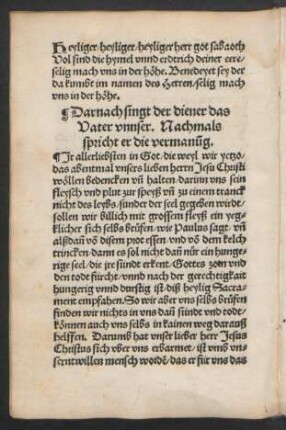 Heyliger heyliger heyliger herr got sabaoth
Vol sind die hymel vnnd erdtrich deiner eere/
selig mach vns in der höhe. Benedeyet sey der
da kumbt im namen des Herren/selig mach
vns in der höhe.
¶ Darnach singt der diener das
Vater vnnser. Nachmals
spricht er die vermanũg.
¶ Ir allerliebsten in Got/die weyl wir yetzo/
das abentmal vnsers lieben herrn Jesu Christi
wöllen bedencken vñ halten/darinn vns sein
fleysch vnd plut zur speyß vñ zu einem tranck
nicht des leybs/sunder der seel gegeben wirdt/
sollen wir billich mit grossem fleyß ein yeg-
klicher sich selbs brüfen/wie Paulus sagt/vñ
alßdañ võ disem prot essen/vnd võ dem kelch
trincken/dann es sol nicht dañ nůr ein hunge-
rige seel/die jre sündt erkent/Gottes zorn vnd
den todt fürcht/vnnd nach der gerechtigkait
hungerig vnnd durstig ist/diß heylig Sacra-
ment empfahen. So wir aber vns selbs brüfen
finden wir nichts in vns dañ sündt vnd todt/
können auch vns selbs in kainen weg darauß
helffen. Darumb hat vnser lieber herr Jesus
Christus sich vber vns erbarmet/ist vmb vn-
serntwillen mensch wordẽ/das er für vns das